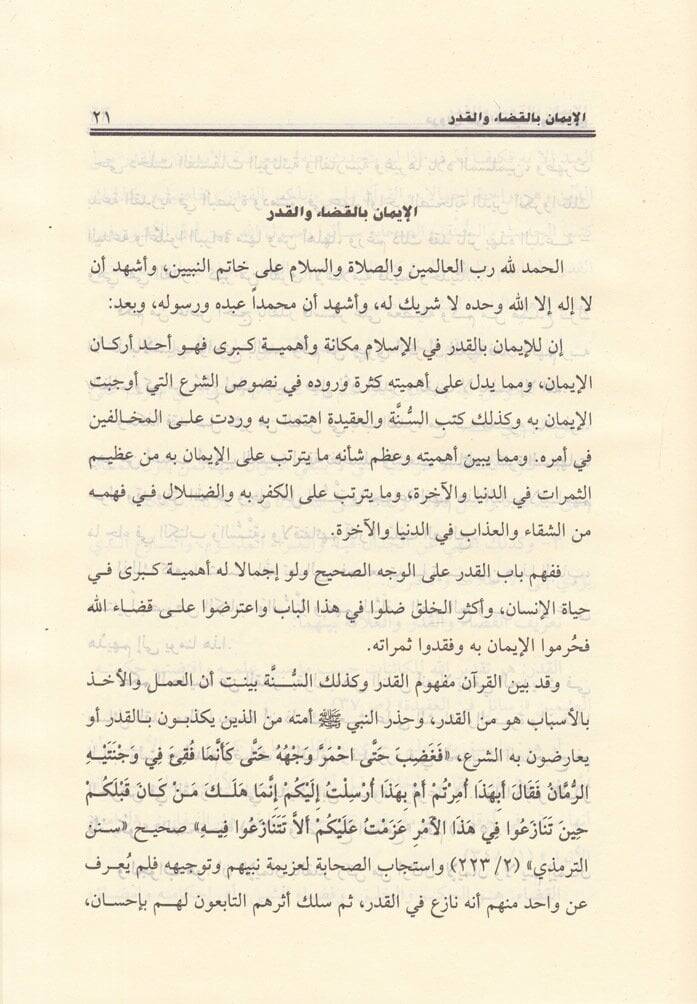 الإيمان بالقضاء والقدر ٢١
الإيمان بالقضاء والقدر
الحمد لله رب العالمين والصلاة والسلام على خاتم النبيين، وأشهد أن
لا إله إلا الله وحده لا شريك له، وأشهد أن محمداً عبده ورسوله، وبعد:
إن للإيمان بالقدر في الإسلام مكانة وأهمية كبرى فهو أحد أركان
الإيمان، ومما يدل على أهميته كثرة وروده في نصوص الشرع التي أوجبت
الإيمان به وكذلك كتب السُّنَّة والعقيدة اهتمت به وردت على المخالفين
في أمره. ومما يبين أهميته وعظم شأنه ما يترتب على الإيمان به من عظيم
الثمرات في الدنيا والآخرة، وما يترتب على الكفر به والضلال في فهمه
من الشقاء والعذاب في الدنيا والآخرة.
ففهم باب القدر على الوجه الصحيح ولو إجمالا له أهمية كبرى في
حياة الإنسان، وأكثر الخلق ضلوا في هذا الباب واعترضوا على قضاء الله
فحُرموا الإيمان به وفقدوا ثمراته.
وقد بين القرآن مفهوم القدر وكذلك السُّنَّة بينت أن العمل والأخذ
بالأسباب هو من القدر، وحذر النبي ﷺ أمته من الذين يكذبون بالقدر أو
يعارضون به الشرع، «فَغَضِبَ حَتَّى احْمَرَّ وَجْهُهُ حَتَّى كَأَنَّمَا فُقِئَ فِي وَجْنَتَيْهِ
الرُّمَّانُ فَقَالَ أَبِهَذَا أُمِرْتُمْ أَمْ بِهَذَا أُرْسِلْتُ إِلَيْكُمْ إِنَّمَا هَلَكَ مَنْ كَانَ قَبْلَكُمْ
حِينَ تَنَازَعُوا فِي هَذَا الأَمْرِ عَزَمْتُ عَلَيْكُمْ أَلاَّ تَتَنَازَعُوا فِيهِ» صحيح «سنن
الترمذي» (٢/ ٢٢٣) واستجاب الصحابة لعزيمة نبيهم وتوجيهه فلم يُعرف
عن واحد منهم أنه نازع في القدر، ثم سلك أثرهم التابعون لهم بإحسان،